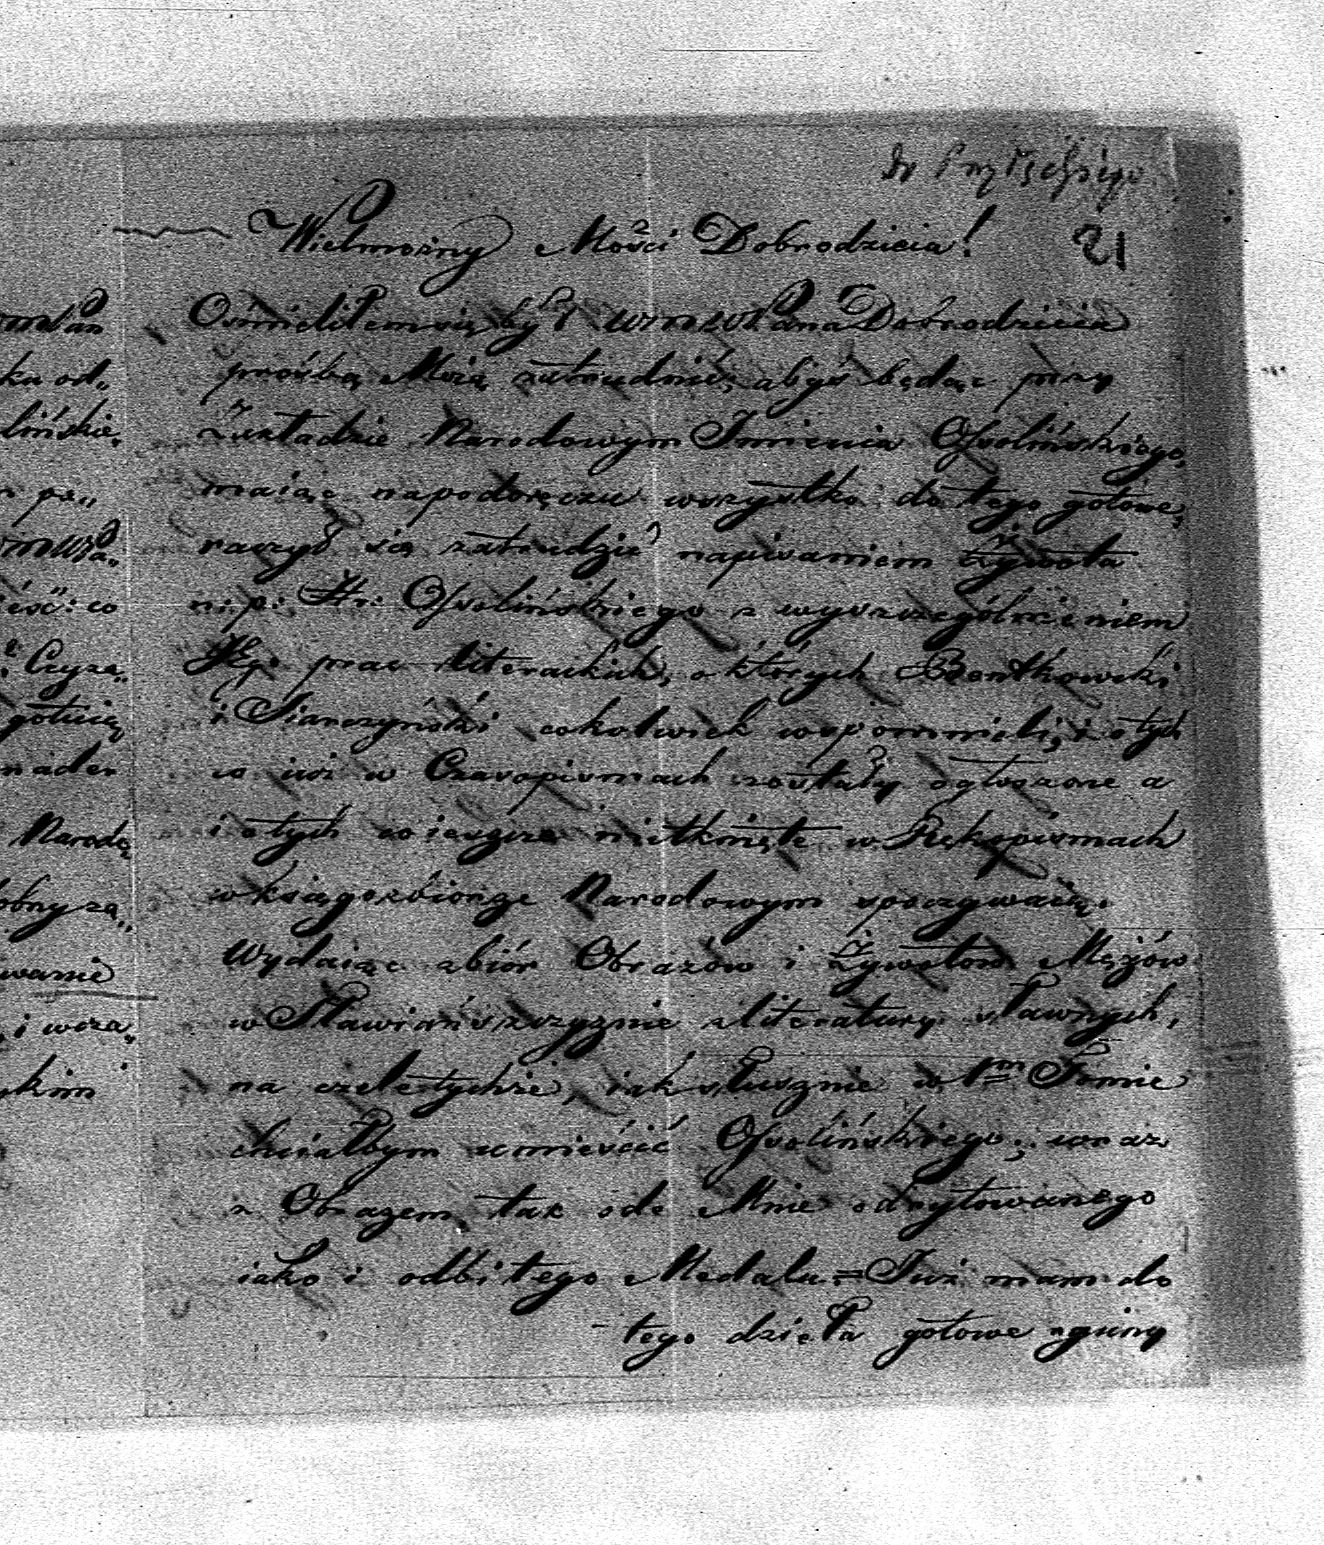 Wielmożny Mości Dobrodzieia!
21
Ośmieliłem się był WmWPana Dobrodzieia
prośbą Moią zatrudnić, abyś będąc przy
Zakładzie Narodowym Imienia Ossolińskiego,
maiąc napodoręczu wszystko do tego gotowe,
raczył się zatrudzić napisaniem żywota
n: p: Hr: Ossolińskiego z wyszczególnieniem
Jego prac literackich, o których Bentkowski
i Siarczyński cokolwiek wspomnieli, i o tych
co iuż w Czasopismach zostały ogłoszone a
i o tych co ieszcze nietknięte w Rękopismach
w księgozbiorze Narodowym spoczywaią.
Wydaiąc zbiór Obrazów i Żywotów Mężów
w Sławiańszczyznie z literatury sławnych,
na czele tychże, iak słusznie w 1m Tomie
chciałbym umieścić Ossolińskiego, wraz
z Obrazem, tak ode Mnie odrytowanego
iako i odbitego Medalu. = Już mam do
tego dzieła gotowe
mPan
ka od„
lińskie„
pa„
mWPa„
co
Czyza„
gotuią
nader
Narodo
obny za„
wanie
i wcza„
ykim